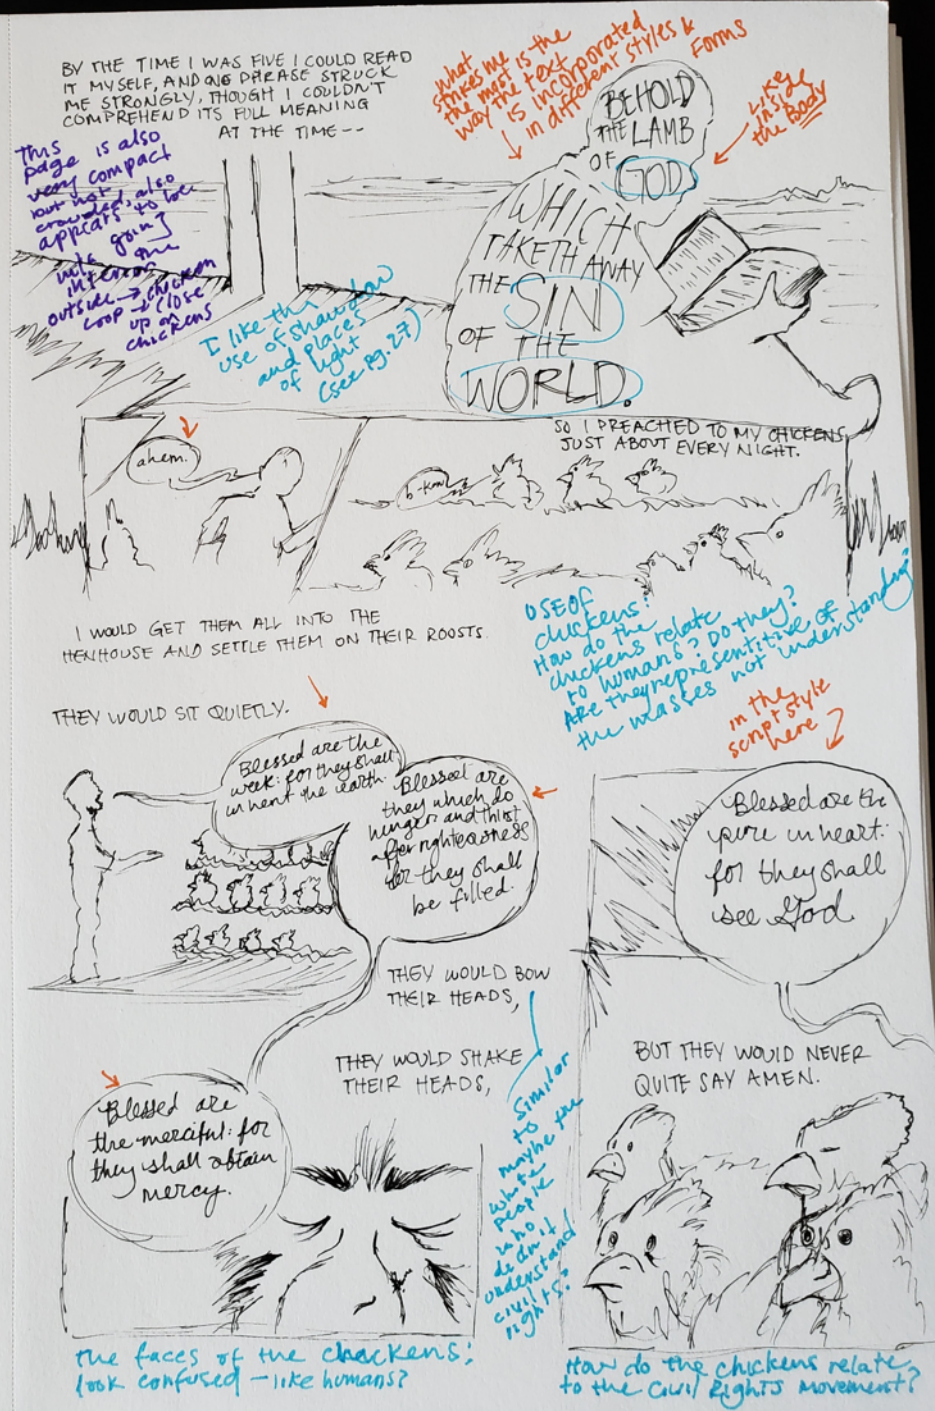 BY THE TIME I WAS FIVE I COULD READ
IT MYSELF, AND ONE PHRASE STRUCK
ME STRONGLY, THOUGH I COULDN'T
COMPREHEND ITS FULL MEANING
AT THE TIME--
What
strikes me
the most is the
way the text
is incorporated
in different styles &
Forms
BEHOLD
THE LAMB
OF GOD,
WHICH
TAKETH AWAY
THE SIN
OF THE
WORLD.
Like
inside
the Body
This
page is also
very compact
but not
crowded, also
appears to be
goin]
into the
interior
outside → chicken
coop → close
up on
chickens
I like the
use of shadow
and places
of light
(see pg. 27)
SO I PREACHED TO MY CHICKENS
JUST ABOUT EVERY NIGHT.
ahem.
b-kaw
I WOULD GET THEM ALL INTO THE
HENHOUSE AND SETTLE THEM ON THEIR ROOSTS.
USE OF
chickens:
How do the
chickens relate
to humans? Do they?
Are they representitive of
the masses not understanding?
THEY WOULD SIT QUIETLY.
Blessed are the
meek: for they shall
inherit the earth.
Blessed are
they which do
hunger and thirst
after righteousness
for they shall
be filled.
in the
script style
here
Blessed are the
pure in heart:
for they shall
see God
THEY WOULD BOW
THEIR HEADS,
THEY WOULD SHAKE
THEIR HEADS,
Similar
to
maybe the
white
people
who
didn't
understand
civil
rights?
BUT THEY WOULD NEVER
QUITE SAY AMEN.
Blessed are
the merciful: for
they shall obtain
mercy.
the faces of the chackens;
look confused – like humans?
How do the chickens relate
to the Civil Rights Movement?